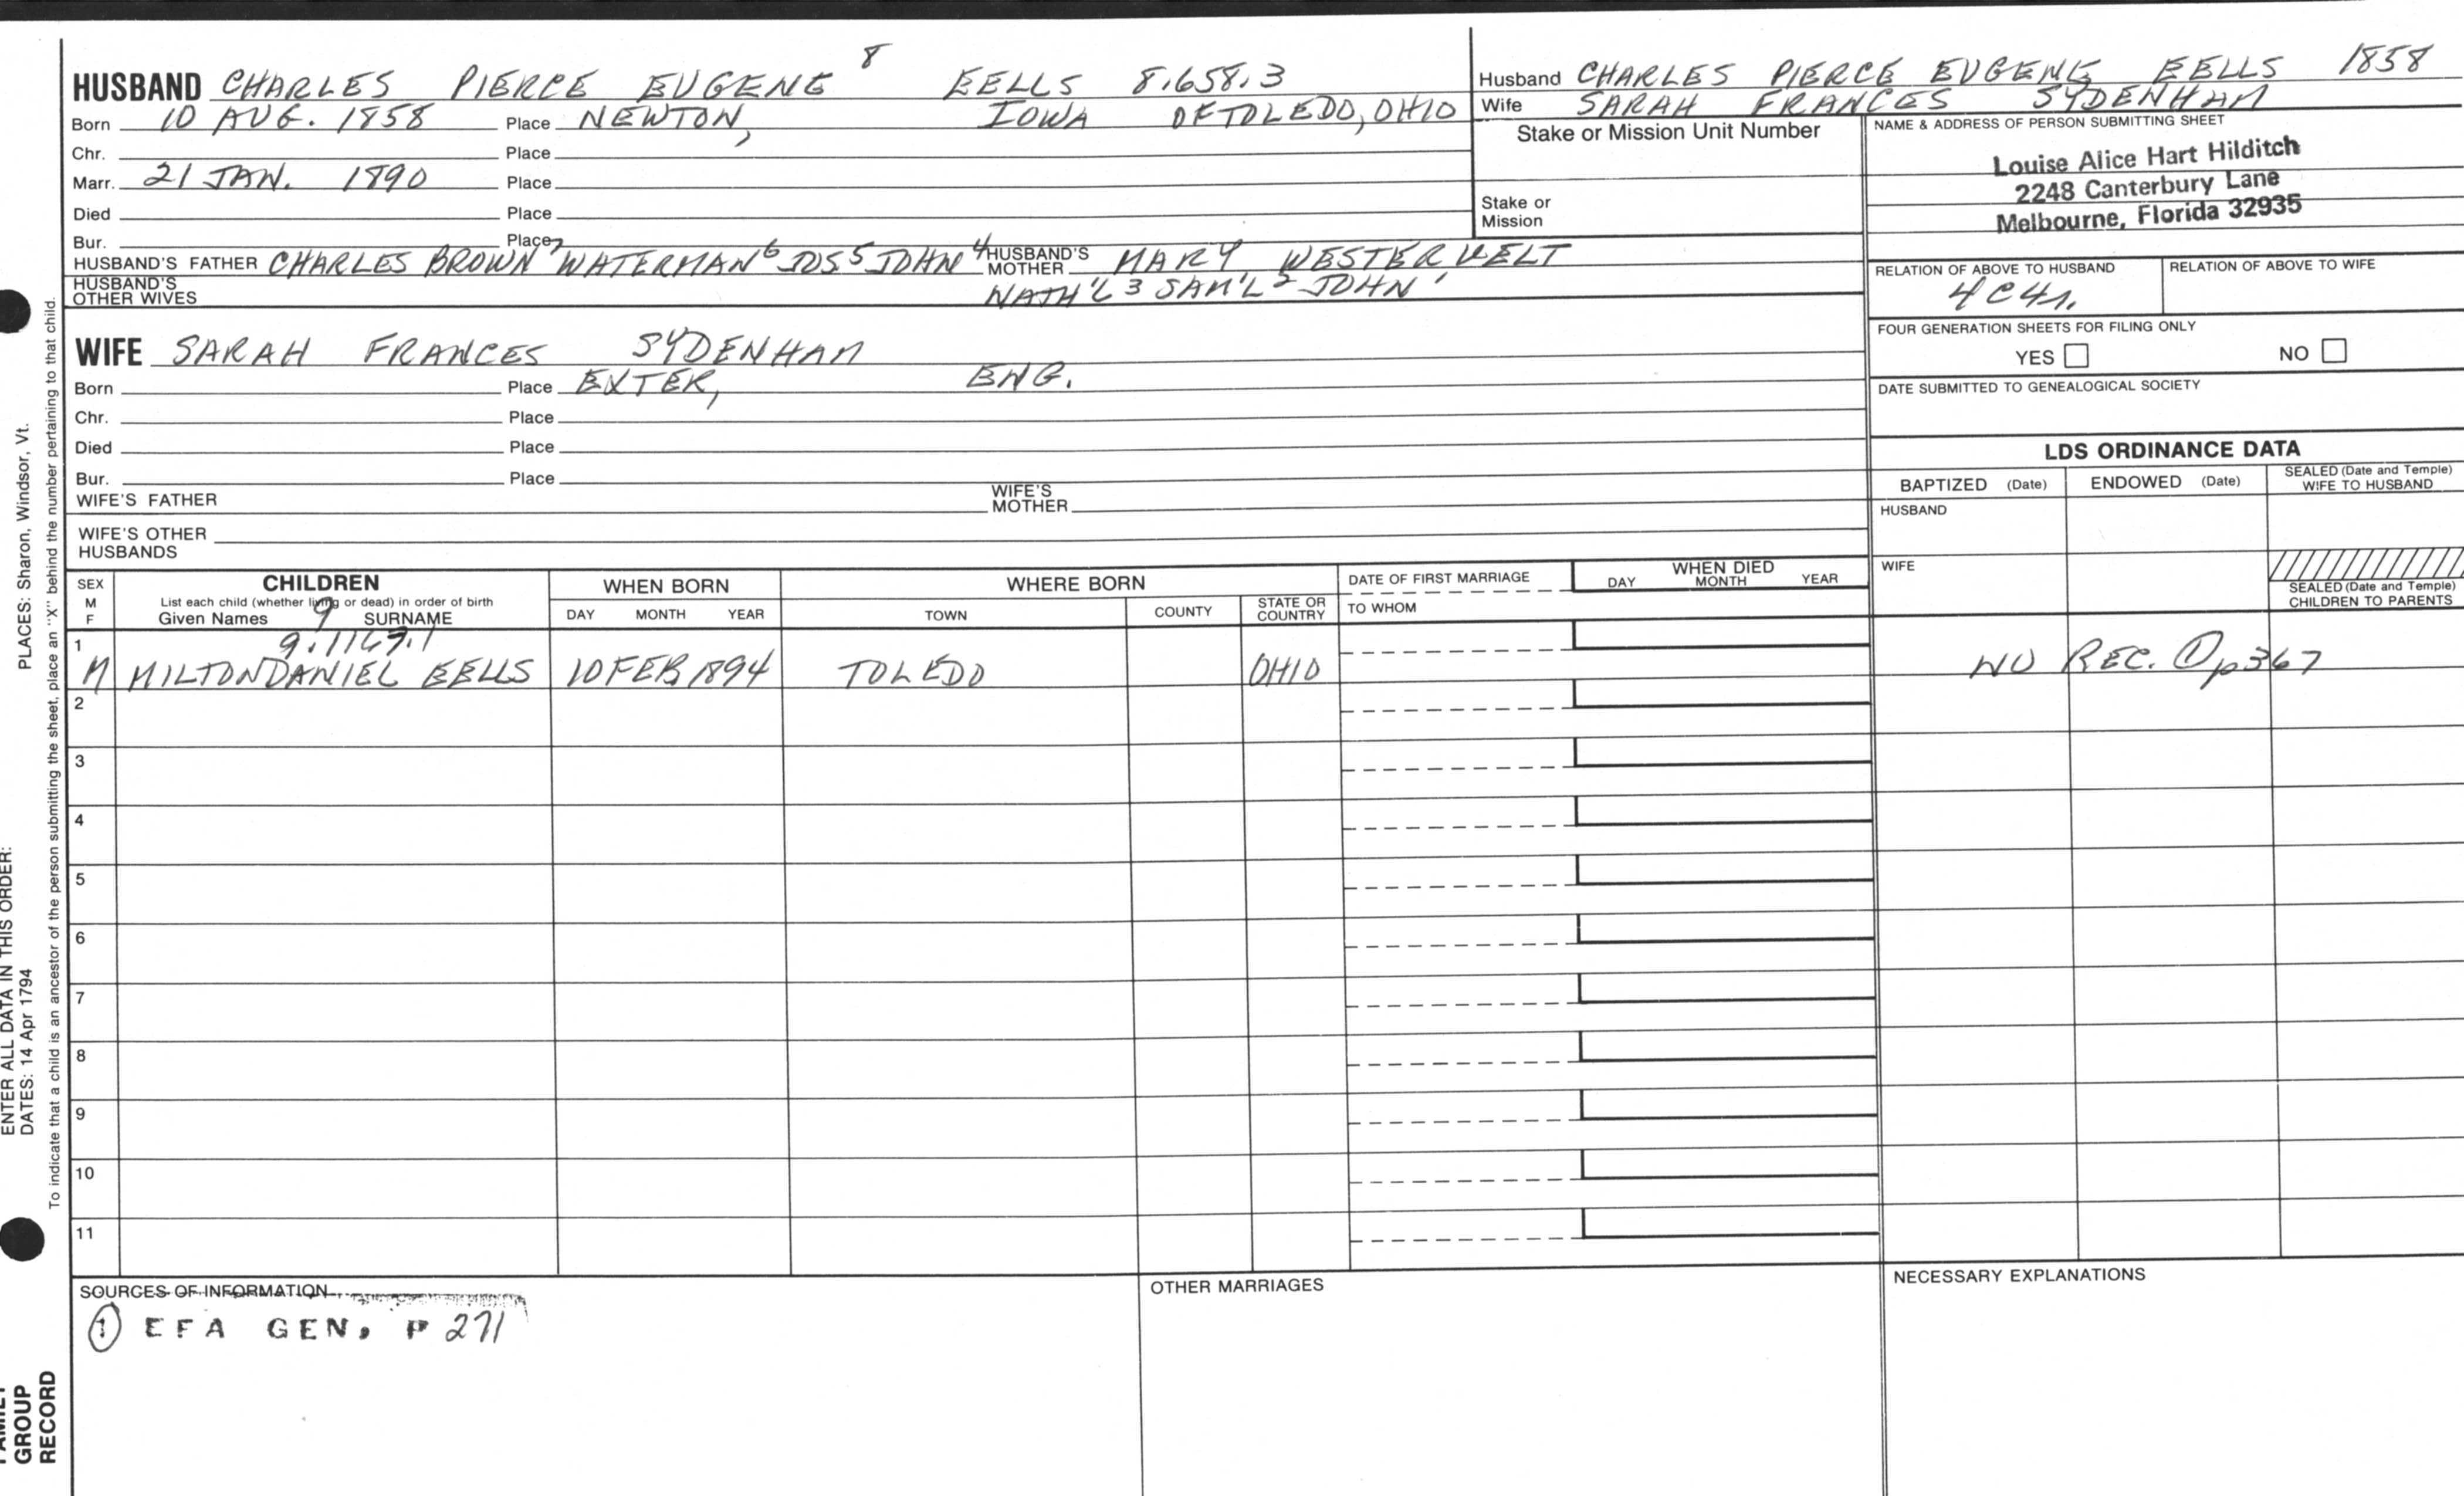 HUSBAND CHARLES PIERCE EUGENE 8 EELLS 8.658.3
Born 10 AUG. 1858 Place NEWTON, IOWA OF TOLEDO, OHIO
Chr. Place
Marr. 21 JAN. 1890 Place
Died Place
Bur. Place
HUSBAND'S FATHER CHARLES BROWN 7 WATERMAN 6 JOS 5 JOHN 4 HUSBAND'S MOTHER MARY WESTERVELT
HUSBAND'S OTHER WIVES NATH'L 3 SAM'L 2 JOHN 1
Husband CHARLES PIERCE EUGENE EELLS 1858
Wife SARAH FRANCES SYDENHAM
Stake or Mission Unit Number
Stake or Mission
NAME & ADDRESS OF PERSON SUBMITTING SHEET
Louise Alice Hart Hilditch
2248 Canterbury Lane
Melbourne, Florida 32935
RELATION OF ABOVE TO HUSBAND RELATION OF ABOVE TO WIFE
4C4r.
FOUR GENERATION SHEETS FOR FILING ONLY
YES NO
DATE SUBMITTED TO GENEALOGICAL SOCIETY
WIFE SARAH FRANCES SYDENHAM
Born Place EXTER, ENG.
Chr. Place
Died Place
Bur. Place
WIFE'S FATHER WIFE'S MOTHER
WIFE'S OTHER HUSBANDS
LDS ORDINANCE DATA
BAPTIZED (Date) ENDOWED (Date) SEALED (Date and Temple) WIFE TO HUSBAND
HUSBAND
WIFE
SEALED (Date and Temple) CHILDREN TO PARENTS
SEX M F
CHILDREN
List each child (whether living or dead) in order of birth
Given Names 9 SURNAME
WHEN BORN
DAY MONTH YEAR
WHERE BORN
TOWN COUNTY STATE OR COUNTRY
DATE OF FIRST MARRIAGE
TO WHOM
WHEN DIED
DAY MONTH YEAR
1 9.1167.1
M MILTON DANIEL EELLS 10 FEB 1894 TOLEDO OHIO NO REC. 1 p367
2
3
4
5
6
7
8
9
10
11
SOURCES OF INFORMATION
1 EFA GEN, P 271
OTHER MARRIAGES
NECESSARY EXPLANATIONS
ENTER ALL DATA IN THIS ORDER:
DATES: 14 Apr 1794 PLACES: Sharon, Windsor, Vt.
To indicate that a child is an ancestor of the person submitting the sheet, place an "X" behind the number pertaining to that child.
FAMILY
GROUP
RECORD